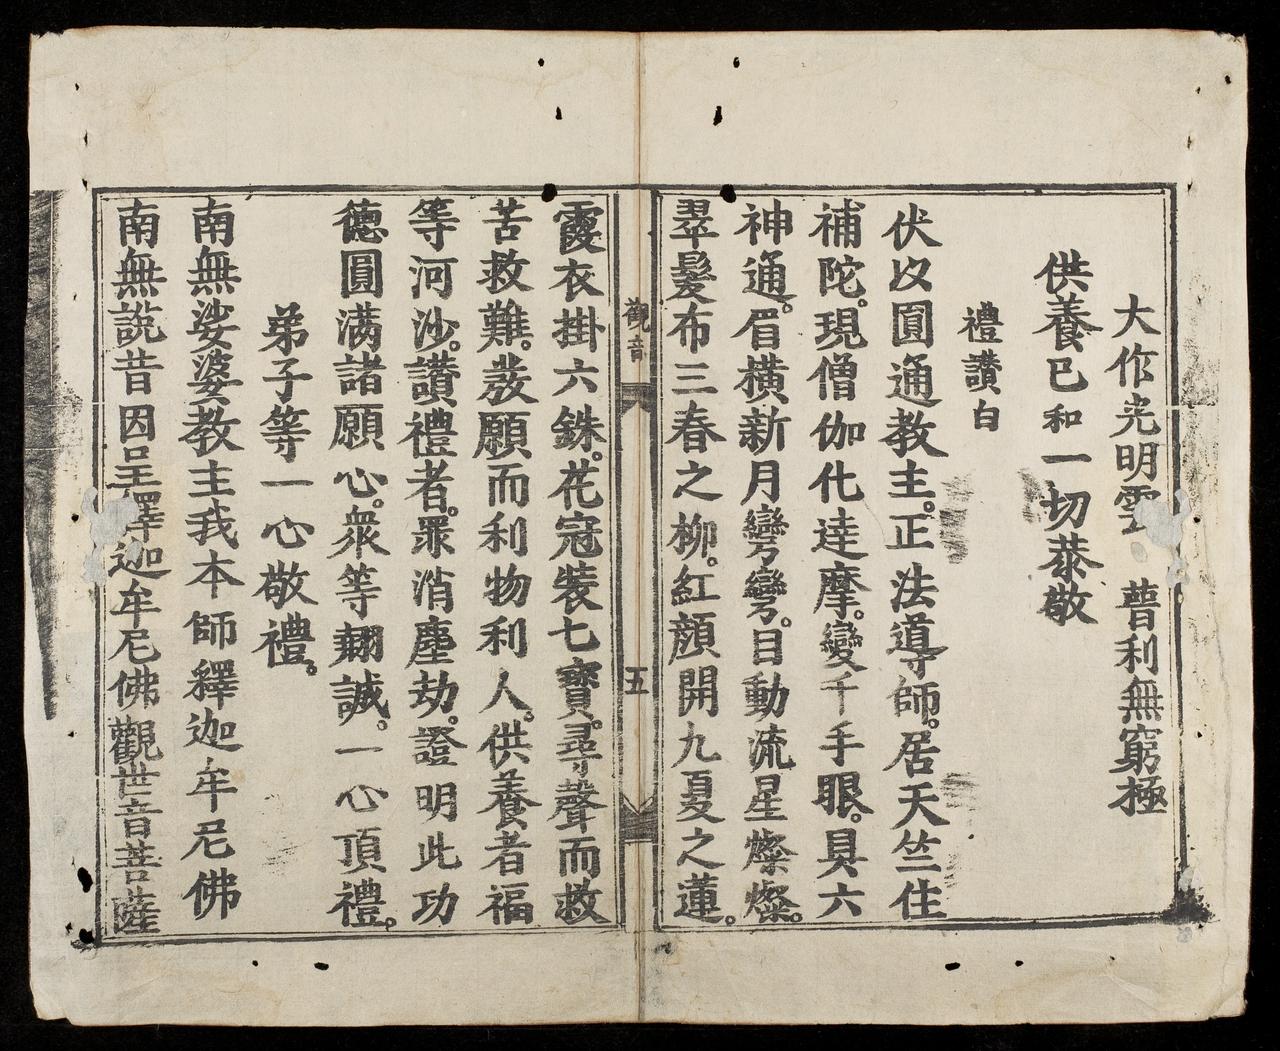 大作光明雲　普利無窮極
供養已和一切恭敬
禮讚白
伏以圓通教主。正法導師。居天竺住
補陀。現僧伽化達摩。變千手眼。具六
神通。眉橫新月彎彎。目動流星燦燦。
翠髮布三春之柳。紅顏開九夏之蓮。
觀音
五
霞衣掛六銖。花冠裝七寶。尋聲而救
苦救難。發願而利物利人。供養者福
等河沙。讚禮者。罪消塵劫。證明此功
德圓滿諸願心。衆等翹誠。一心頂禮。
弟子等一心敬禮。
南無娑婆教主我本師釋迦牟尼佛
南無說昔因呈釋迦牟尼佛觀世音菩薩